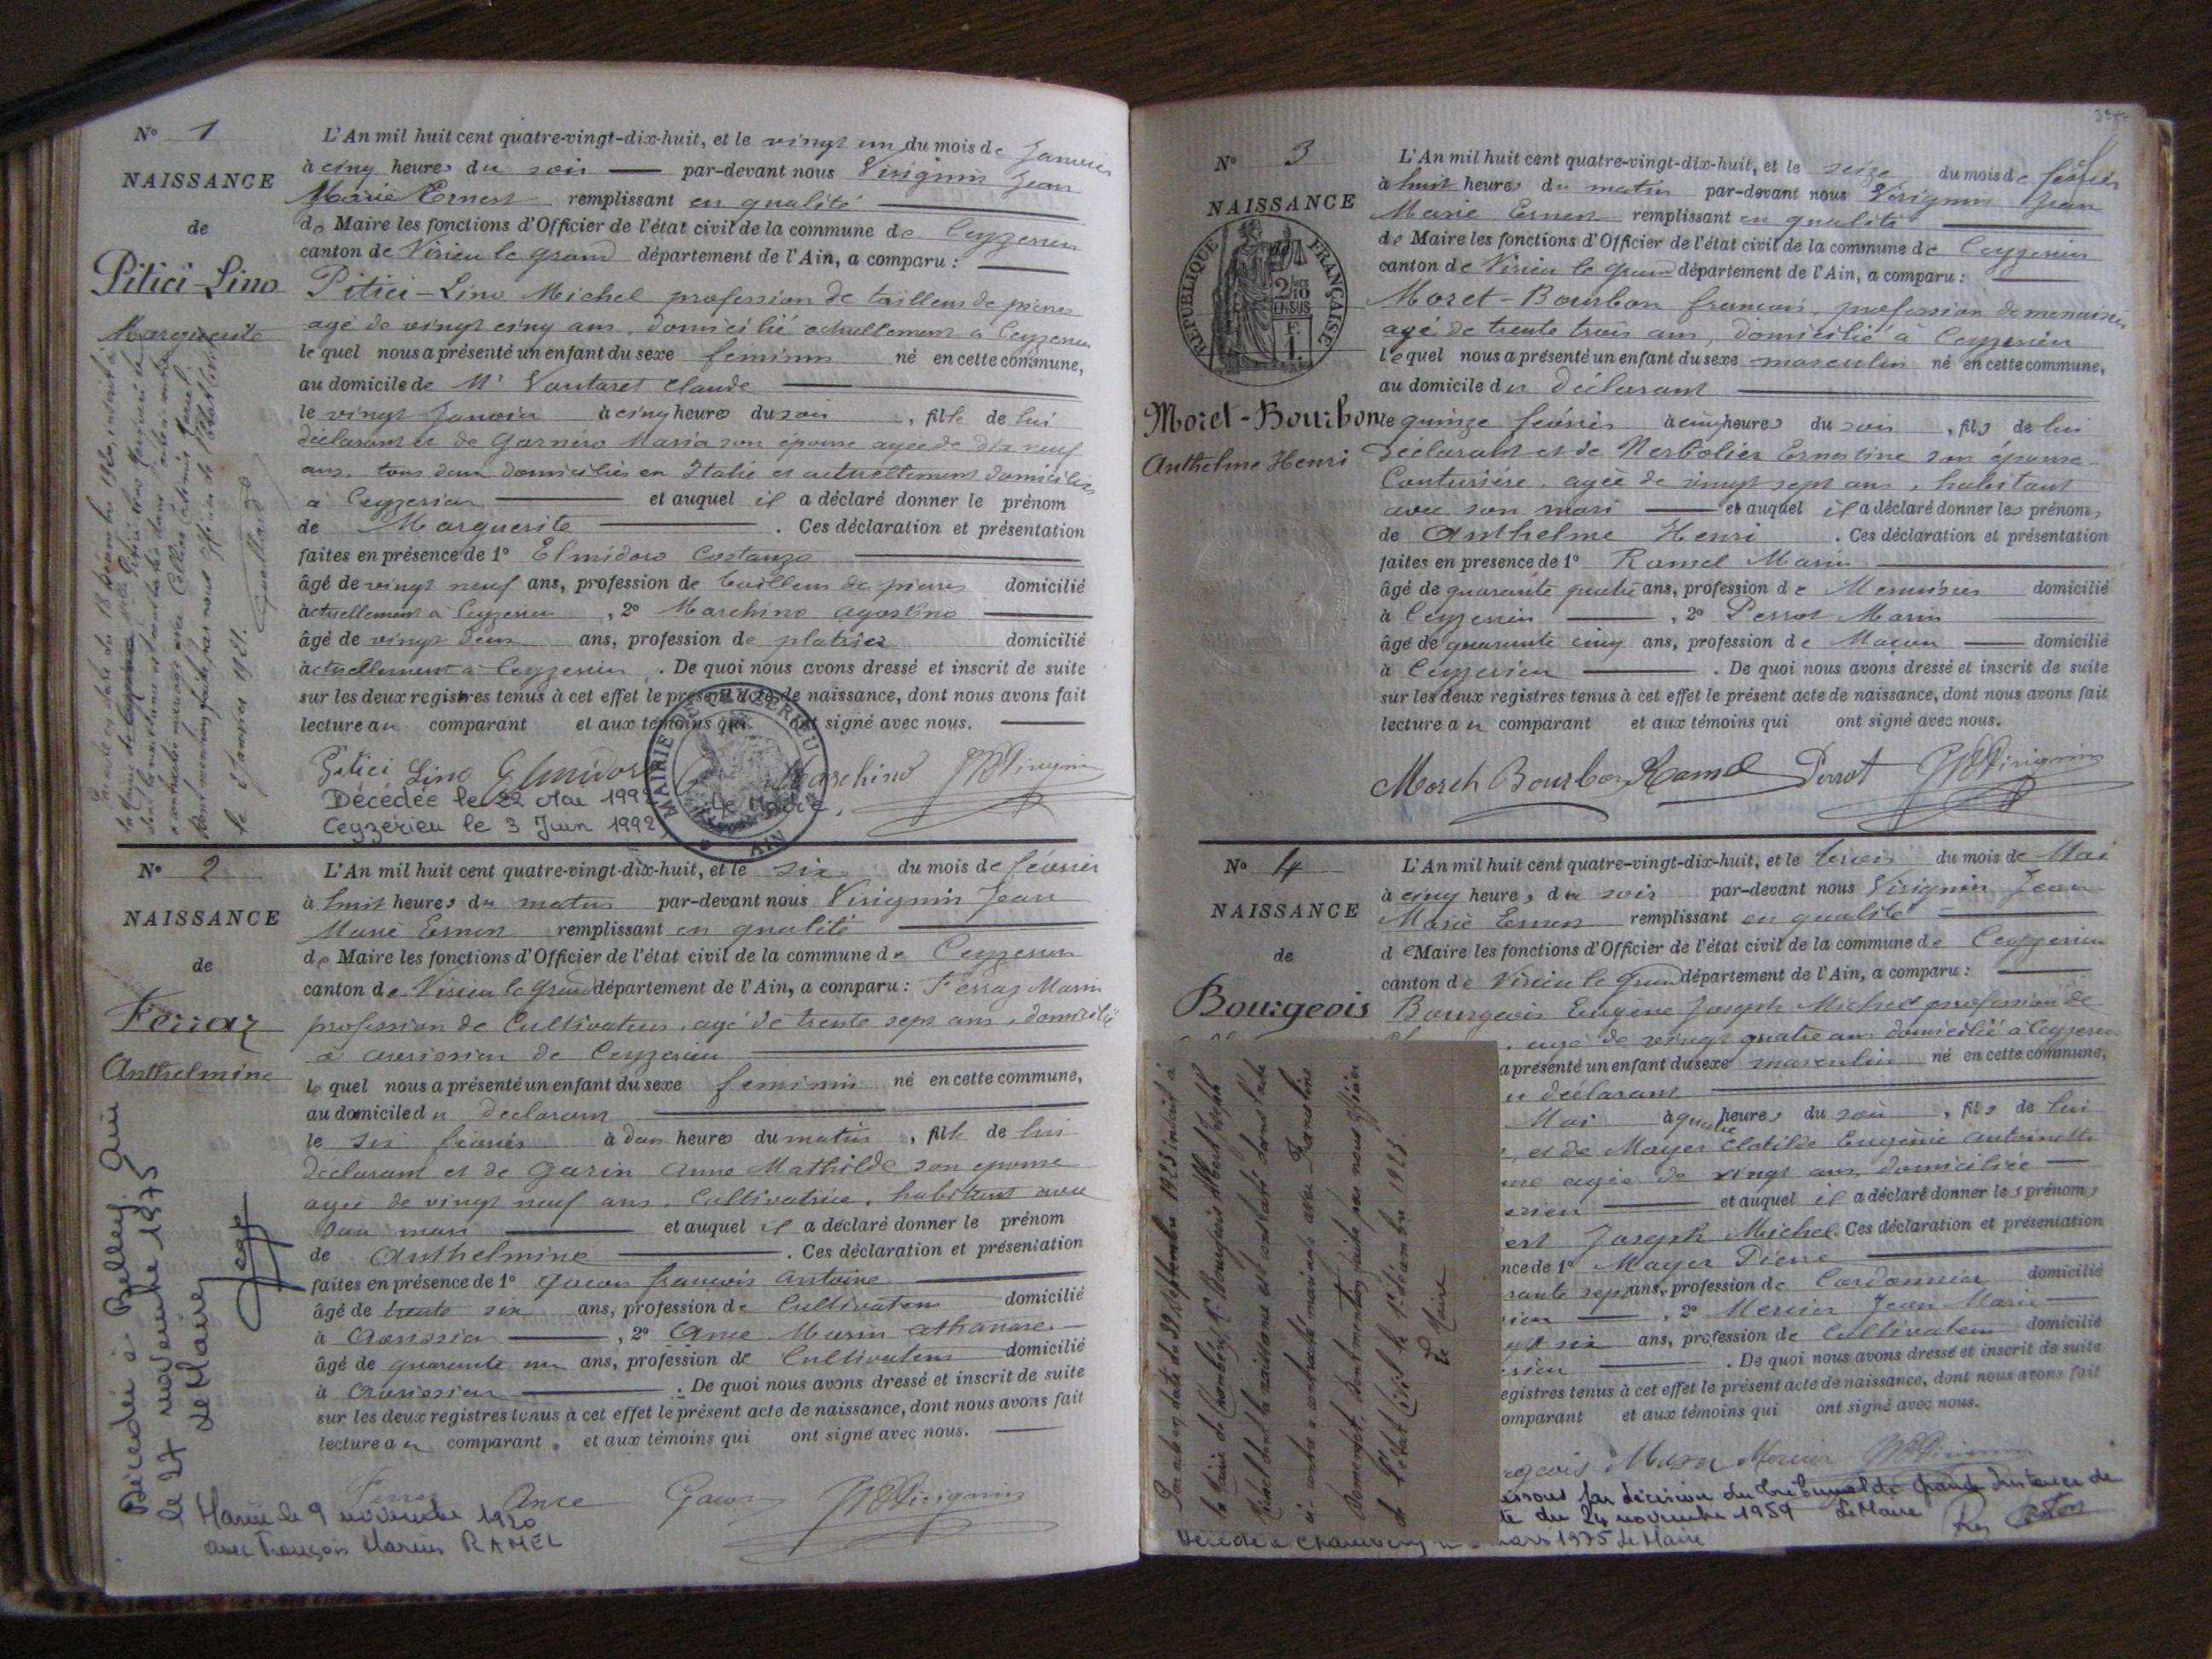 N° 1
NAISSANCE
de
Pitici-Lino
Marguerite
L'An mil huit cent quatre-vingt-dix-huit, et le vingt un du mois de Janvier
à cinq heures du soir par-devant nous Virignin Jean
Marie Ernest remplissant en qualité
de Maire les fonctions d'Officier de l'état civil de la commune de Ceyzerieu
canton de Virieu le grand département de l'Ain, a comparu :
Pitici-Lino Michel profession de tailleur de pierres
agé de vingt cinq ans, domicilié actuellement à Ceyzerieu
lequel nous a présenté un enfant du sexe féminin né en cette commune,
au domicile de Mr Vautaret Claude
le vingt Janvier à cinq heures du soir, fille de lui
déclarant et de Garnéro Maria son épouse agée de dix neuf
ans, tous deux domiciliés en Italie et actuellement domiciliés
à Ceyzerieu et auquel il a déclaré donner le prénom
de Marguerite. Ces déclaration et présentation
faites en présence de 1° Elmidoro Costanzo
âgé de vingt neuf ans, profession de tailleur de pierres domicilié
actuellement à Ceyzerieu, 2° Marchino Agostino
âgé de vingt deux ans, profession de platrier domicilié
actuellement à Ceyzerieu. De quoi nous avons dressé et inscrit de suite
sur les deux registres tenus à cet effet le présent acte de naissance, dont nous avons fait
lecture au comparant et aux témoins qui ont signé avec nous.
Pitici Lino Elmidoro Marchino Virignin
Décédée le 22 Mai 1992
Ceyzérieu le 3 Juin 1992
Le Maire,
MAIRIE DE CEYZERIEU
AIN
le 2 Janvier 1921.
N° 2
NAISSANCE
de
Ferraz
Anthelmine
L'An mil huit cent quatre-vingt-dix-huit, et le six du mois de février
à huit heures du matin par-devant nous Virignin Jean
Marie Ernest remplissant en qualité
de Maire les fonctions d'Officier de l'état civil de la commune de Ceyzerieu
canton de Virieu le Grand département de l'Ain, a comparu : Ferraz Marin
profession de Cultivateur, agé de trente sept ans, domicilié
à Avrissieu de Ceyzerieu
lequel nous a présenté un enfant du sexe feminin né en cette commune,
au domicile du declarant
le six fevrier à deux heures du matin, fille de lui
declarant et de Garin Anne Mathilde son epouse
agée de vingt neuf ans, Cultivatrice, habitant avec
son mari et auquel il a déclaré donner le prénom
de Anthelmine. Ces déclaration et présentation
faites en présence de 1° Gacon françois Antoine
âgé de trente six ans, profession de Cultivateur domicilié
à Avrissieu, 2° Ance Marin Athanase
âgé de quarante un ans, profession de Cultivateur domicilié
à Avrissieu. De quoi nous avons dressé et inscrit de suite
sur les deux registres tenus à cet effet le présent acte de naissance, dont nous avons fait
lecture au comparant, et aux témoins qui ont signé avec nous.
Ferraz Ance Gacon Virignin
Décédée à Belley, Ain
le 27 novembre 1975
le Maire
Mariée le 9 novembre 1920
avec François Marius RAMEL
N° 3
NAISSANCE
REPUBLIQUE FRANÇAISE
2/10 EN SUS
Moret-Bourbon
Anthelme Henri
L'An mil huit cent quatre-vingt-dix-huit, et le seize du mois de février
à huit heures du matin par-devant nous Virignin Jean
Marie Ernest remplissant en qualité
de Maire les fonctions d'Officier de l'état civil de la commune de Ceyzerieu
canton de Virieu le grand département de l'Ain, a comparu :
Moret-Bourbon francois, profession de menuisier
agé de trente trois ans, domicilié à Ceyzerieu
lequel nous a présenté un enfant du sexe masculin né en cette commune,
au domicile du déclarant
le quinze février à cinq heures du soir, fils de lui
déclarant et de Nerbolier Ernestine son épouse
Couturière, agée de vingt sept ans, habitant
avec son mari et auquel il a déclaré donner les prénoms
de Anthelme Henri. Ces déclaration et présentation
faites en presence de 1° Ramel Marin
âgé de quarante quatre ans, profession de Menuisier domicilié
à Ceyzerieu, 2° Perrot Marin
âgé de quarante cinq ans, profession de Maçon domicilié
à Ceyzerieu. De quoi nous avons dressé et inscrit de suite
sur les deux registres tenus à cet effet le présent acte de naissance, dont nous avons fait
lecture au comparant et aux témoins qui ont signé avec nous.
Moret Bourbon Ramel Perrot Virignin
N° 4
NAISSANCE
de
Bourgeois
L'An mil huit cent quatre-vingt-dix-huit, et le trois du mois de Mai
à cinq heures du soir par-devant nous Virignin Jean
Marie Ernest remplissant en qualité
de Maire les fonctions d'Officier de l'état civil de la commune de Ceyzerieu
canton de Virieu le Grand département de l'Ain, a comparu :
Bourgeois Eugène Joseph Michel profession de
, agé de vingt quatre ans domicilié à Ceyzerieu
a présenté un enfant du sexe masculin né en cette commune,
u déclarant
Mai à quatre heures du soir, fils de lui
, et de Mayer Clotilde Eugénie Antoinette
agée de vingt ans, domiciliée
erieu et auquel il a déclaré donner les prénoms
ert Joseph Michel. Ces déclaration et présentation
nce de 1° Mayer Pierre
rante sept ans, profession de Cordonnier domicilié
, 2° Mercier Jean Marie
six ans, profession de Cultivateur domicilié
. De quoi nous avons dressé et inscrit de suite
egistres tenus à cet effet le présent acte de naissance, dont nous avons fait
omparant et aux témoins qui ont signé avec nous.
rgeois Mayer Mercier Virignin
issous par décision du tribunal de Grande Instance de
du 24 novembre 1959 Le Maire
Décédé à Chambéry mars 1975 Le Maire
Par acte en date du 29 septembre 1923 inscrit à
la Mairie de Chambéry, Bourgeois Albert Joseph
Michel dont la naissance est constatée dans l'acte
ci-contre a contracté mariage avec
Mention faite par nous officier
de l'état Civil le 1er décembre 1923.
Le Maire